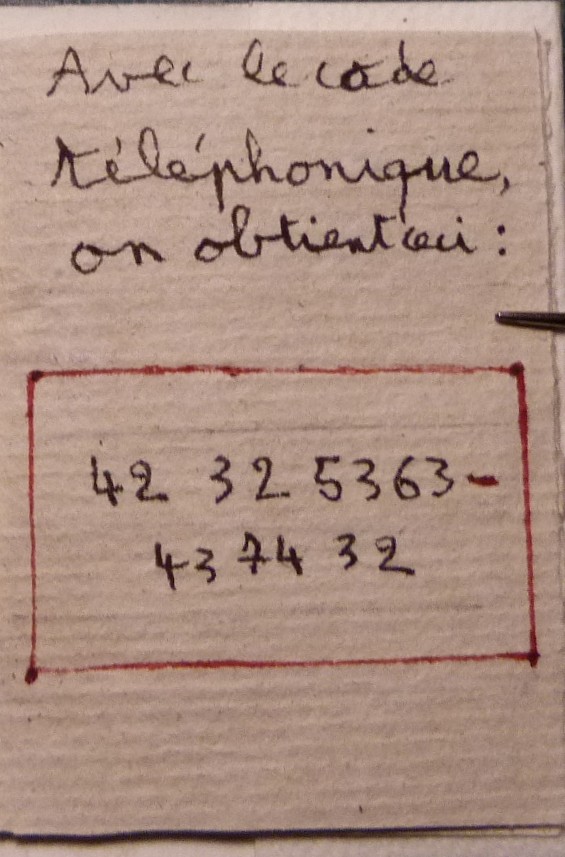 Avec le code
téléphonique,
on obtient ceci :
42 32 5363-
43 74 32